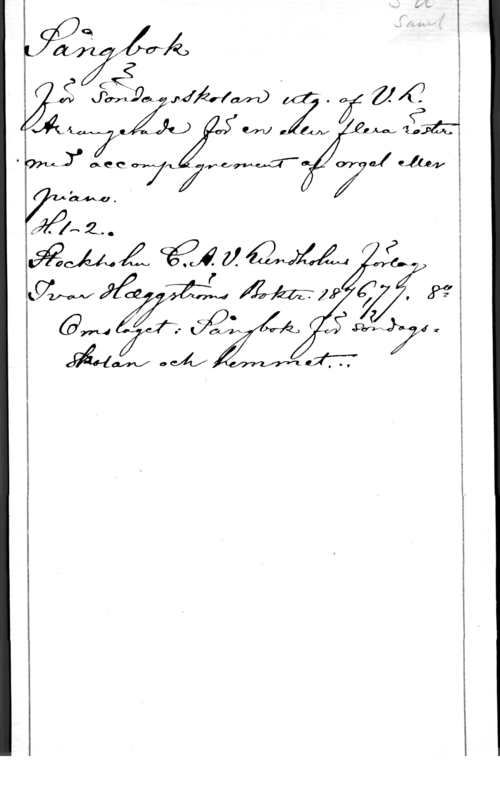 Saml
Sångbok
för Söndagsskolan utg. af V. R.
Arrangerade för en eller flera röster
med accompagnement af orgel eller
piano.
H. 1-2.
Stockholm C. A. V. Lundholms förlag
Ivar Hæggströms Boktr. 1876, 77. 8º
Omslaget: Sångbok för söndags-
skolan och hemmet...